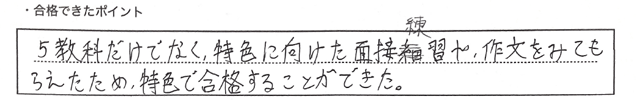 ・合格できたポイント
5教科だけでなく、特色に向けた面接練習や、作文をみても
らえたため、特色で合格することができた。